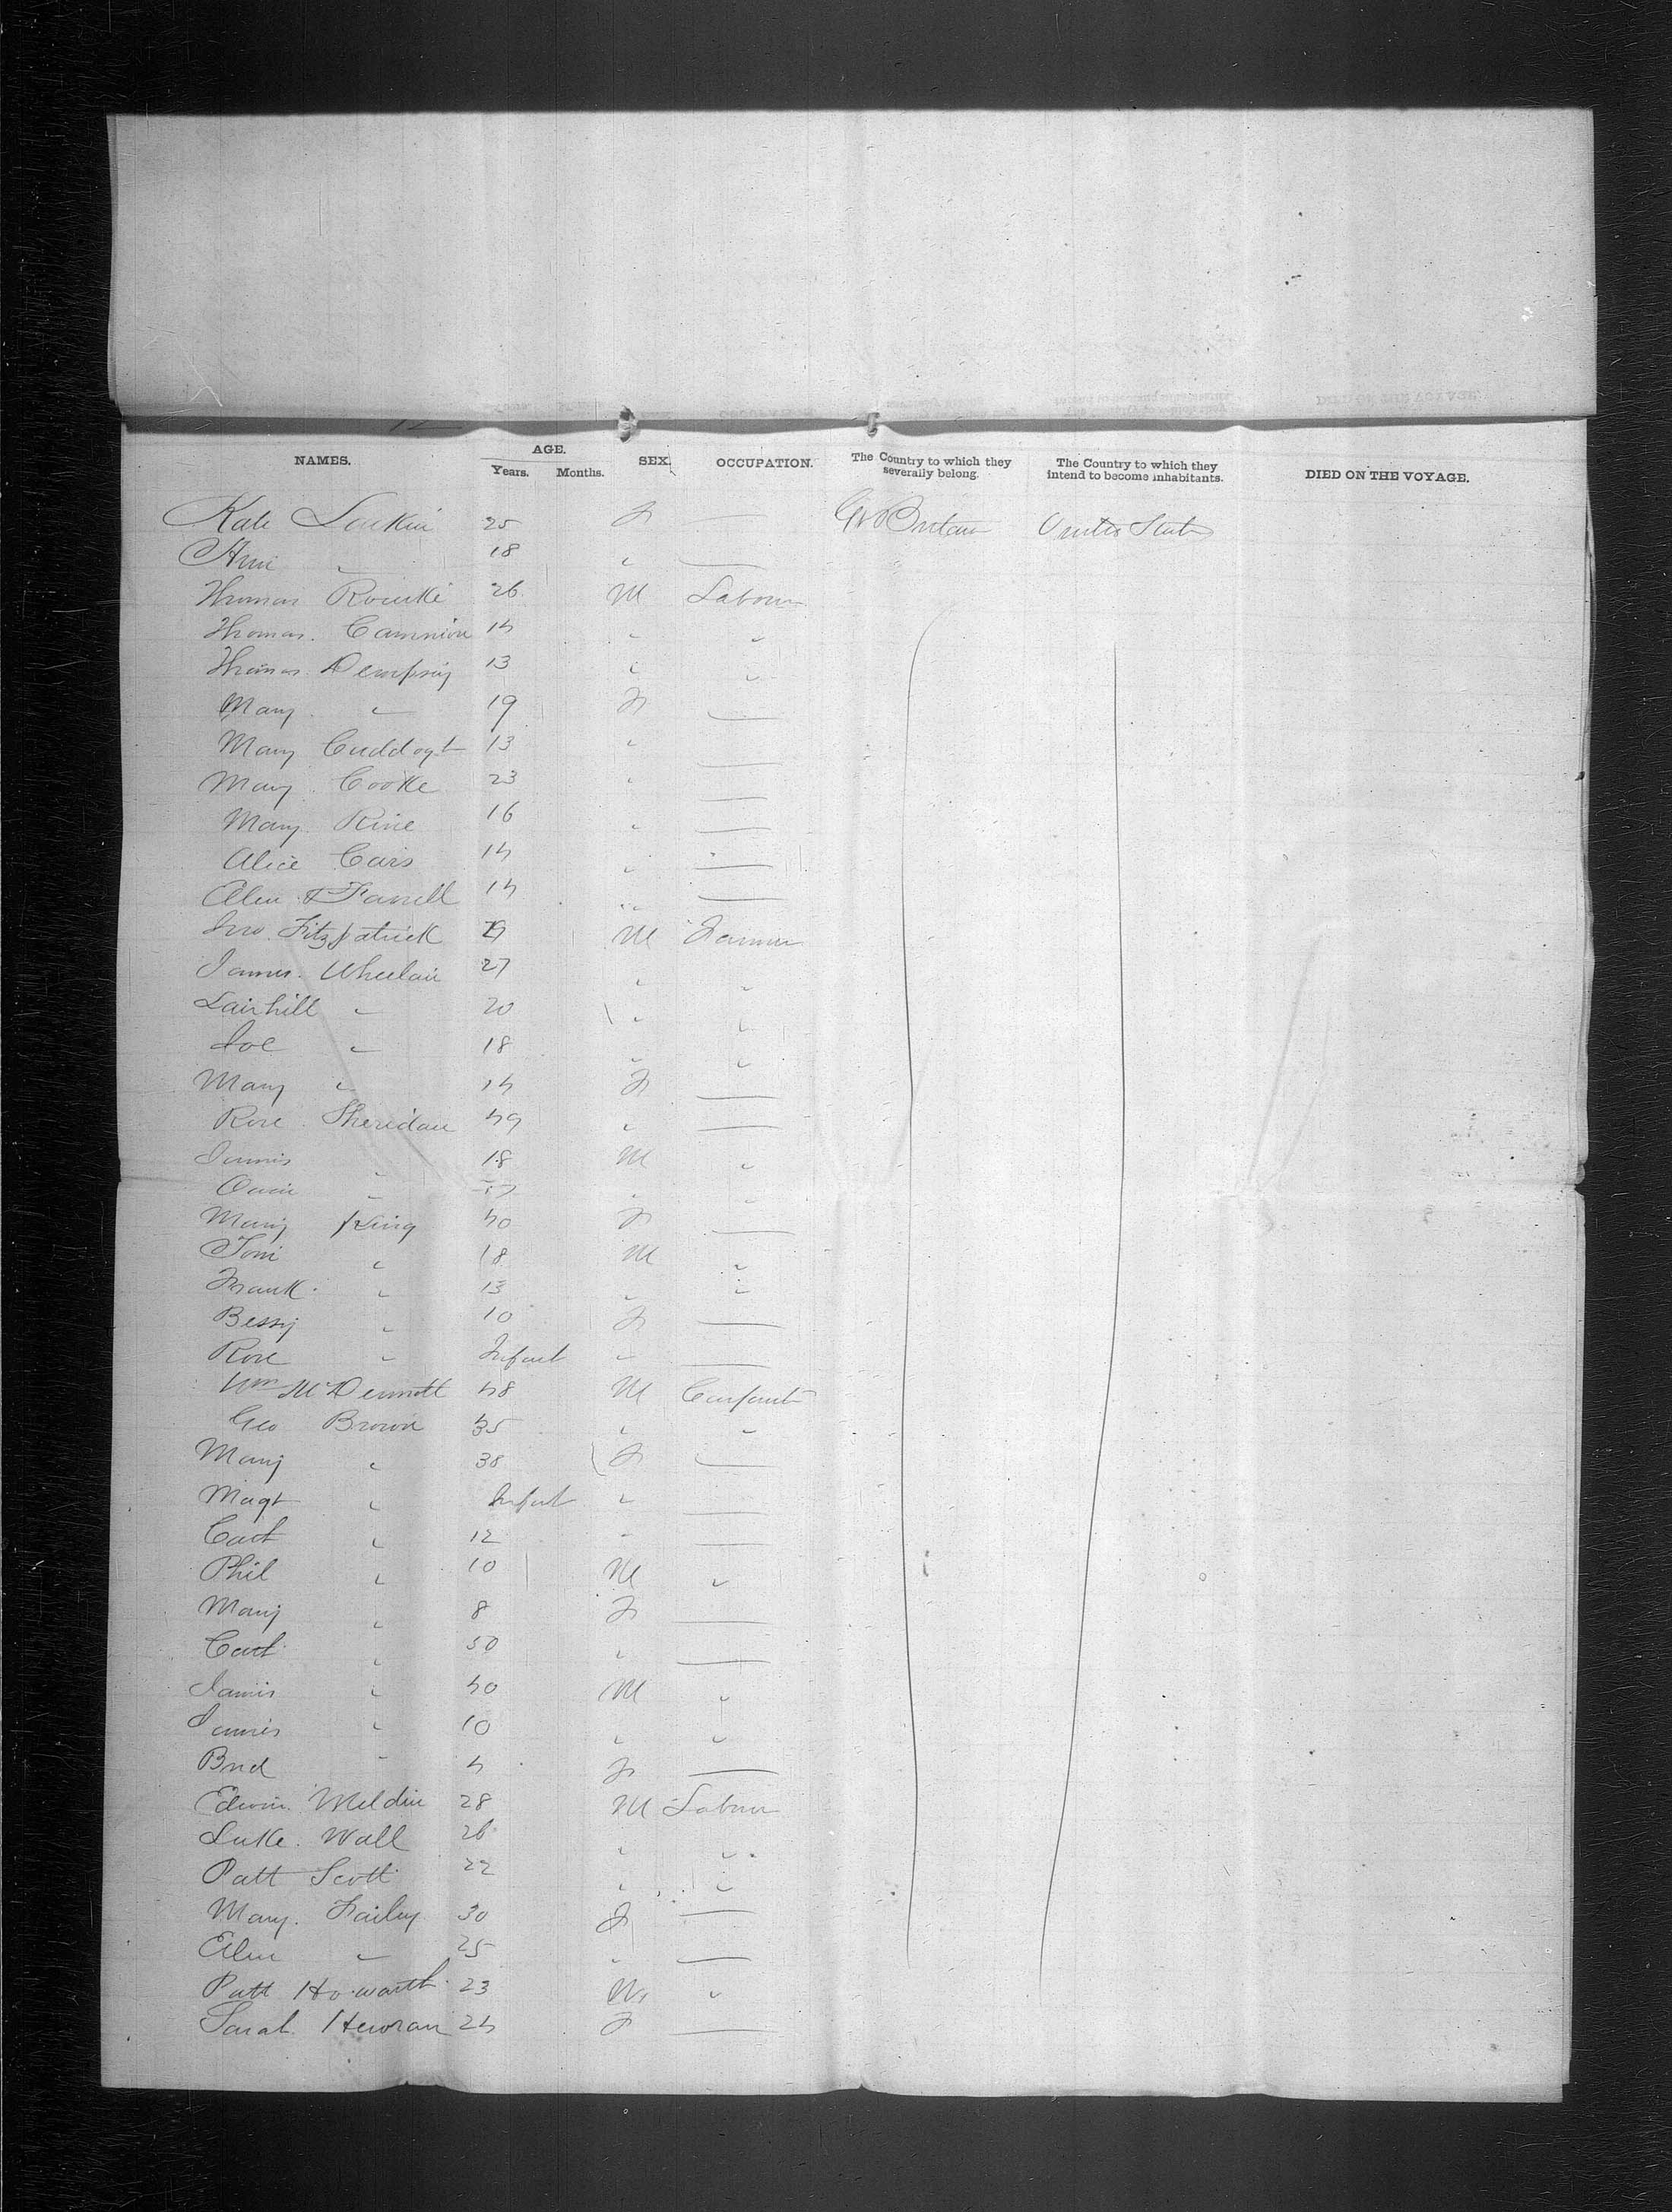 NAMES. AGE. Years. Months. SEX. OCCUPATION. The Country to which they severally belong. The Country to which they intend to become inhabitants. DIED ON THE VOYAGE.
Kate Larkin 25 F — Gt Britain United States
Ann " 18 " —
Thomas Rourke 26 M Labour
Thomas. 14 " "
Thomas. Dempsey 13 " "
Mary " 19 F —
Mary 13 " —
Mary Cooke 23 " —
Mary 16 " —
Alice 14 " —
Ellen Farrell 14 " —
Jno Fitzpatrick M Farmer
James. Wheelan 27 " "
" 20 " "
Joe " 18 " "
Mary " 14 F —
Rose Sheridan 49 " —
" 18 M "
Owen " " "
Mary King 40 F —
Tom " 18 M "
Frank " 13 " "
Bessy " 10 F —
Rose " Infant " —
Wm McDermott 48 M Carpent
Geo Brown 35 " "
Mary " 38 F —
Magt " Infant " —
Cath " 12 " —
Phil " 10 M "
Mary " 8 F —
Cath " 50 " —
James " 40 M "
James " 10 " "
Brid " 4 F —
Edwin 28 M Labour
Luke. Wall 26 " "
Patt Scott 22 " "
Mary. 30 F —
Ellen " 25 " —
Patt Howarth 23 M "
Sarah 24 F —